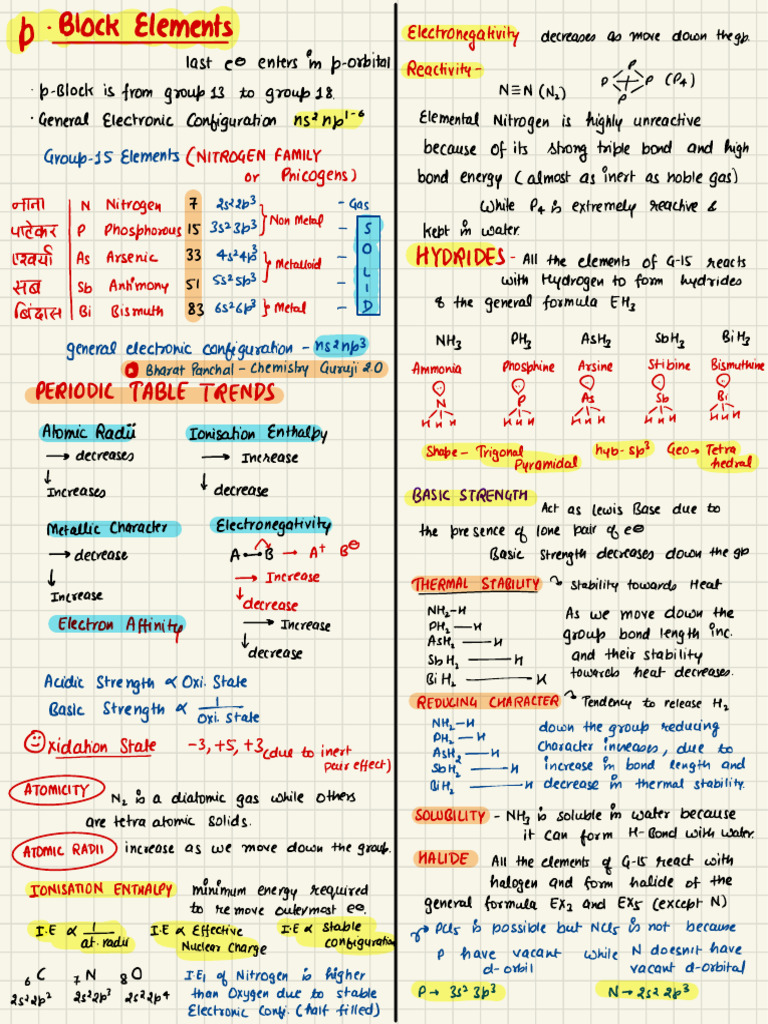 p - Block Elements
last e⊖ enters in p-orbital
· p-Block is from group 13 to group 18.
· General Electronic Configuration ns²np¹⁻⁶
Group-15 Elements (NITROGEN FAMILY
or Pnicogens)
नाना N Nitrogen 7 2s²2p³ - Gas
पाटेकर P Phosphorous 15 3s²3p³ Non Metal - S
O
एश्वर्या As Arsenic 33 4s²4p³ - L
Metalloid
सब Sb Antimony 51 5s²5p³ - I
बिंदास Bi Bismuth 83 6s²6p³ } Metal - D
general electronic configuration - ns²np³
Bharat Panchal - Chemistry Guruji 2.0
PERIODIC TABLE TRENDS
Atomic Radii Ionisation Enthalpy
→ decreases → Increase
↓ Increases ↓ decrease
Metallic Character Electronegativity
→ decrease A—B → A⁺ B⊖
↓ Increase → Increase
↓ decrease
Electron Affinity → Increase
↓ decrease
Acidic Strength ∝ Oxi. State
Basic Strength ∝ 1/Oxi. State
Oxidation State -3, +5, +3 (due to inert
pair effect)
ATOMICITY N₂ is a diatomic gas while others
are tetra atomic solids.
ATOMIC RADII increase as we move down the group.
IONISATION ENTHALPY minimum energy required
to remove outermost e⊖.
I.E ∝ 1/at. radii I.E ∝ Effective Nuclear Charge I.E ∝ Stable configuration
₆C ₇N ₈O I.E₁ of Nitrogen is higher
2s²2p² 2s²2p³ 2s²2p⁴ than Oxygen due to stable
Electronic Conf. (half filled)
Electronegativity decreases as move down the gp.
Reactivity -
N≡N (N₂) P P P P (P₄)
Elemental Nitrogen is highly unreactive
because of its strong triple bond and high
bond energy (almost as inert as noble gas)
While P₄ is extremely reactive &
kept in water.
HYDRIDES - All the elements of G-15 reacts
with Hydrogen to form hydrides
& the general formula EH₃
NH₃ PH₃ AsH₃ SbH₃ BiH₃
Ammonia Phosphine Arsine Stibine Bismuthine
N P As Sb Bi
H H H H H H H H H H H H H H H
Shape - Trigonal Pyramidal hyb - sp³ Geo → Tetra hedral
BASIC STRENGTH Act as lewis Base due to
the presence of lone pair of e⊖
Basic Strength decreases down the gp
THERMAL STABILITY → Stability towards Heat
NH₂—H As we move down the
PH₂—H group bond length inc.
AsH₂—H and their stability
SbH₂—H towards heat decreases.
BiH₂—H
REDUCING CHARACTER → Tendency to release H₂
NH₂—H down the group reducing
PH₂—H character increases, due to
AsH₂—H increase in bond length and
SbH₂—H decrease in thermal stability.
BiH₂—H
SOLUBILITY - NH₃ is soluble in water because
it can form H-Bond with water.
HALIDE All the elements of G-15 react with
halogen and form halide of the
general formula EX₃ and EX₅ (except N)
PCl₅ is possible but NCl₅ is not because
P have vacant d-orbil while N doesnit have vacant d-orbital
P → 3s²3p³ N → 2s²2p³